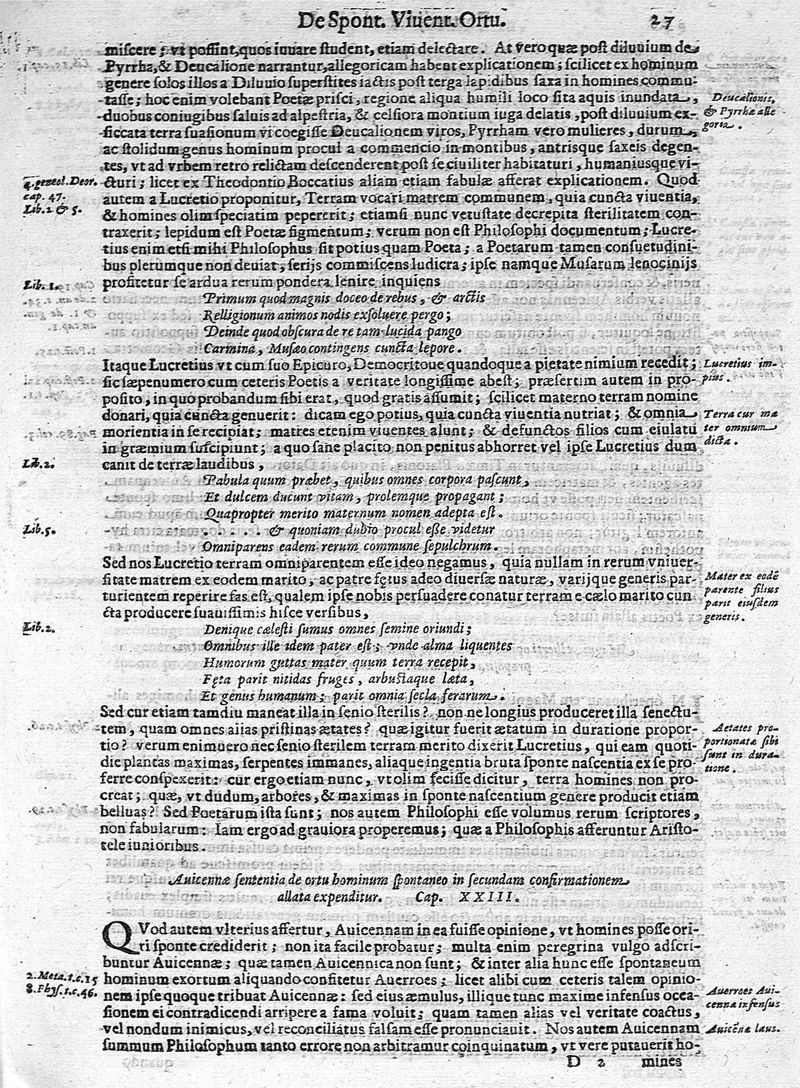 De Spont. Viuent. Ortu. 27
miscere; vt possint, quos iuuare student, etiam delectare. At vero quæ post diluuium de
Pyrrha, & Deucalione narrantur, allegoricam habent explicationem; scilicet ex hominum
genere solos illos a Diluuio superstites iactis post terga lapidibus saxa in homines commu-
tasse; hoc enim volebant Poetæ prisci, regione aliqua humili loco sita aquis inundata,
Deucalionis,
& Pyrrhæ alle
goria.
duobus coniugibus saluis ad alpestria, & celsiora montium iuga delatis, post diluuium ex-
siccata terra suasionum vi coegisse Deucalionem viros, Pyrrham vero mulieres, durum,
ac stolidum genus hominum procul a commercio in montibus, antrisque saxeis degen-
tes, vt ad vrbem retro relictam descenderent post se ciuiliter habitaturi, humaniusque vi-
4. geneol. Deor.
cap. 47.
Lib. 2 & 5.
cturi; licet ex Theodontio Boccatius aliam etiam fabulæ afferat explicationem. Quod
autem a Lucretio proponitur, Terram vocari matrem communem, quia cuncta viuentia,
& homines olim speciatim pepererit; etiamsi nunc vetustate decrepita sterilitatem con-
traxerit; lepidum est Poetæ figmentum; verum non est Philosophi documentum; Lucre-
tius enim etsi mihi Philosophus sit potius quam Poeta; a Poetarum tamen consuetudini-
bus plerumque non deuiat, serijs commiscens ludicra; ipse namque Musarum lenocinijs
Lib. 1.
profitetur se ardua rerum pondera lenire inquiens
Primum quod magnis doceo de rebus, & arctis
Relligionum animos nodis exsoluere pergo;
Deinde quod obscura de re tam lucida pango
Carmina, Musæo contingens cuncta lepore.
Itaque Lucretius vt cum suo Epicuro, Democritoue quandoque a pietate nimium recedit;
Lucretius im-
pius.
sic sæpenumero cum ceteris Poetis a veritate longissime abest; præsertim autem in pro-
posito, in quo probandum sibi erat, quod gratis assumit; scilicet materno terram nomine
donari, quia cuncta genuerit: dicam ego potius, quia cuncta viuentia nutriat; & omnia
Terra cur ma
ter omnium
dicta.
morientia in se recipiat; matres etenim viuentes alunt; & defunctos filios cum eiulatu
in græmium suscipiunt; a quo sane placito non penitus abhorret vel ipse Lucretius dum
Lib. 2.
canit de terræ laudibus,
Pabula quum præbet, quibus omnes corpora pascunt,
Et dulcem ducunt vitam, prolemque propagant;
Quapropter merito maternum nomen adepta est.
Lib. 5.
. . . . . & quoniam dubio procul esse videtur
Omniparens eadem rerum commune sepulchrum.
Sed nos Lucretio terram omniparentem esse ideo negamus, quia nullam in rerum vniuer-
Mater ex eodē
parente filius
parit eiusdem
generis.
sitate matrem ex eodem marito, ac patre fętus adeo diuersæ naturæ, varijque generis par-
turientem reperire fas est, qualem ipse nobis persuadere conatur terram e cælo marito cun
cta producere suauissimis hisce versibus,
Lib. 2.
Denique cælesti sumus omnes semine oriundi;
Omnibus ille idem pater est; vnde alma liquentes
Humorum guttas mater quum terra recepit,
Fęta parit nitidas fruges, arbustaque læta,
Et genus humanum; parit omnia secla ferarum.
Sed cur etiam tamdiu maneat illa in senio sterilis? non ne longius produceret illa senectu-
Aetates pro-
portionatæ sibi
sunt in dura-
tione.
tem, quam omnes alias pristinas ætates? quæ igitur fuerit ætatum in duratione propor-
tio? verum enimuero nec senio sterilem terram merito dixerit Lucretius, qui eam quoti-
die plantas maximas, serpentes immanes, aliaque ingentia bruta sponte nascentia ex se pro-
ferre conspexerit: cur ergo etiam nunc, vt olim fecisse dicitur, terra homines non pro-
creat; quæ, vt dudum, arbores, & maximas in sponte nascentium genere producit etiam
belluas? Sed Poetarum ista sunt; nos autem Philosophi esse volumus rerum scriptores,
non fabularum: Iam ergo ad grauiora properemus; quæ a Philosophis afferuntur Aristo-
tele iunioribus.
Auicennæ sententia de ortu hominum spontaneo in secundam confirmationem
allata expenditur. Cap. XXIII.
QVod autem vlterius affertur, Auicennam in ea fuisse opinione, vt homines posse ori-
ri sponte crediderit; non ita facile probatur; multa enim peregrina vulgo adscri-
buntur Auicennæ; quæ tamen Auicennica non sunt; & inter alia hunc esse spontaneum
2. Meta. t. c. 15
8. Phys. t. c. 46.
hominum exortum aliquando confitetur Auerroes; licet alibi cum ceteris talem opinio-
nem ipse quoque tribuat Auicennæ: sed eius æmulus, illique tunc maxime infensus occa-
Auerroes Aui-
cennæ infensus
sionem ei contradicendi arripere a fama voluit; quam tamen alias vel veritate coactus,
vel nondum inimicus, vel reconciliatus falsam esse pronunciauit. Nos autem Auicennam
Auicēnæ laus.
summum Philosophum tanto errore non arbitramur coinquinatum, vt vere putauerit ho-
D 2 mines